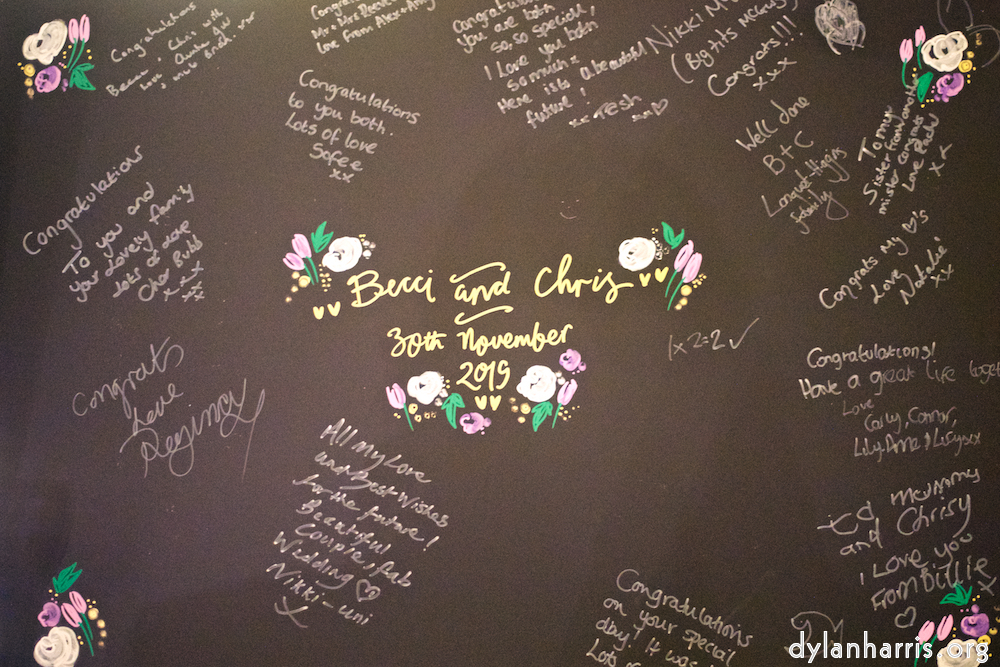 Congratulations
Becci, Chris with
love, Auntie
Congratulations
Mr & Mrs Reeves
love from Alex
Congratulations
You are both
so, so special,
I Love you both
so much x
Here is to a beautiful
future!
xx Tesh xx
Nikki
(Big tits
Congrats!!!
xxx
Congratulations
to you both.
Lots of love
Sofee
xx
Well done
B+C
Family
To my
Sister from another
mister congrats
Love
x
Congratulations
To you and
your lovely family
lots of love
xxx
xx
Congrats My ♡'s
Love
Natalie
xx
Becci and Chris
30th November
2019
1x2=2✓
Congratulations!
Have a great life toget
Love
Carly, Connor,
Congrats
Love
All My Love
and Best Wishes
for the future!
Beautiful
Couple, fab
Wedding ♡
Nikki - uni
X
to mummy
and Chrisy
I Love you
From Billie
♡
Congratulations
on your special
day! It was
Lots
dylanharris.org